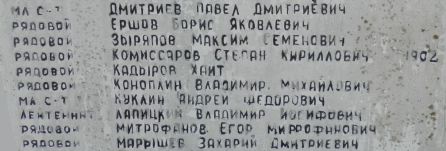 МЛ С-Т ДМИТРИЕВ ПАВЕЛ ДМИТРИЕВИЧ
РЯДОВОЙ ЕРШОВ БОРИС ЯКОВЛЕВИЧ
РЯДОВОЙ ЗЫРЯПОВ МАКСИМ СЕМЕНОВИЧ
РЯДОВОЙ КОМИССАРОВ СТЕПАН КИРИЛЛОВИЧ 1902
РЯДОВОЙ КАДЫРОВ ХАИТ
РЯДОВОЙ КОНОПЛИН ВЛАДИМИР МИХАИЛОВИЧ
МЛ С-Т КУКЛИН АНДРЕЙ ФЕДОРОВИЧ
ЛЕЙТЕНАНТ ЛАПИЦКИЙ ВЛАДИМИР ИОСИФОВИЧ
РЯДОВОЙ МИТРОФАНОВ ЕГОР МИРОФАНОВИЧ
РЯДОВОЙ МАРЫШЕВ ЗАХАРИЙ ДМИТРИЕВИЧ